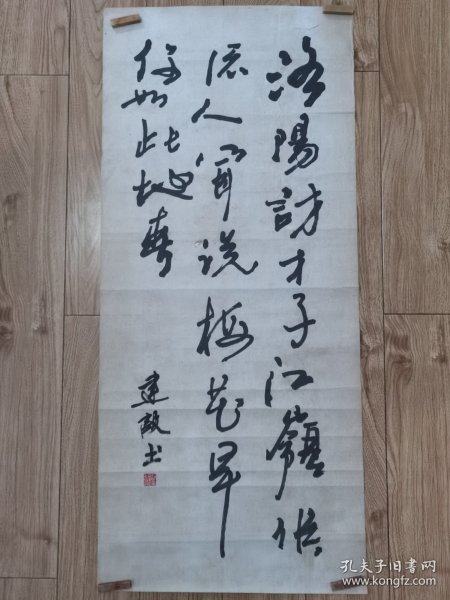 洛陽訪才子江嶺作
流人聞说梅花早
何如此地春
书
孔夫子旧书网
www.kongfz.com